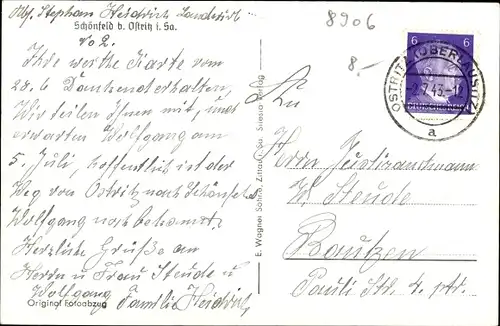 Abs. Stephan Heidrich Landwirt
Schönfeld b. Ostritz i. Sa.
No 2.
Ihre werthe Karte vom
28.6 Dankend erhalten,
Wir teilen Ihnen mit, und
erwarten Wolfgang am
5. Juli, hoffentlich ist der
Weg von Ostritz nach Schönfeld
Wolfgang noch bekannt,
Herzliche Grüße an
Herrn u Frau Steude u
Wolfgang Familie Heidrich
Original Fotoabzug
E. Wagner Söhne, Zittau i. Sa.
8906
8.-
6 6
OSTRITZ (OBERLAUSITZ)
7.43.
a
An
Herrn Justizamtmann
Steude
Bautzen
Pauli Str. 4. ptr.